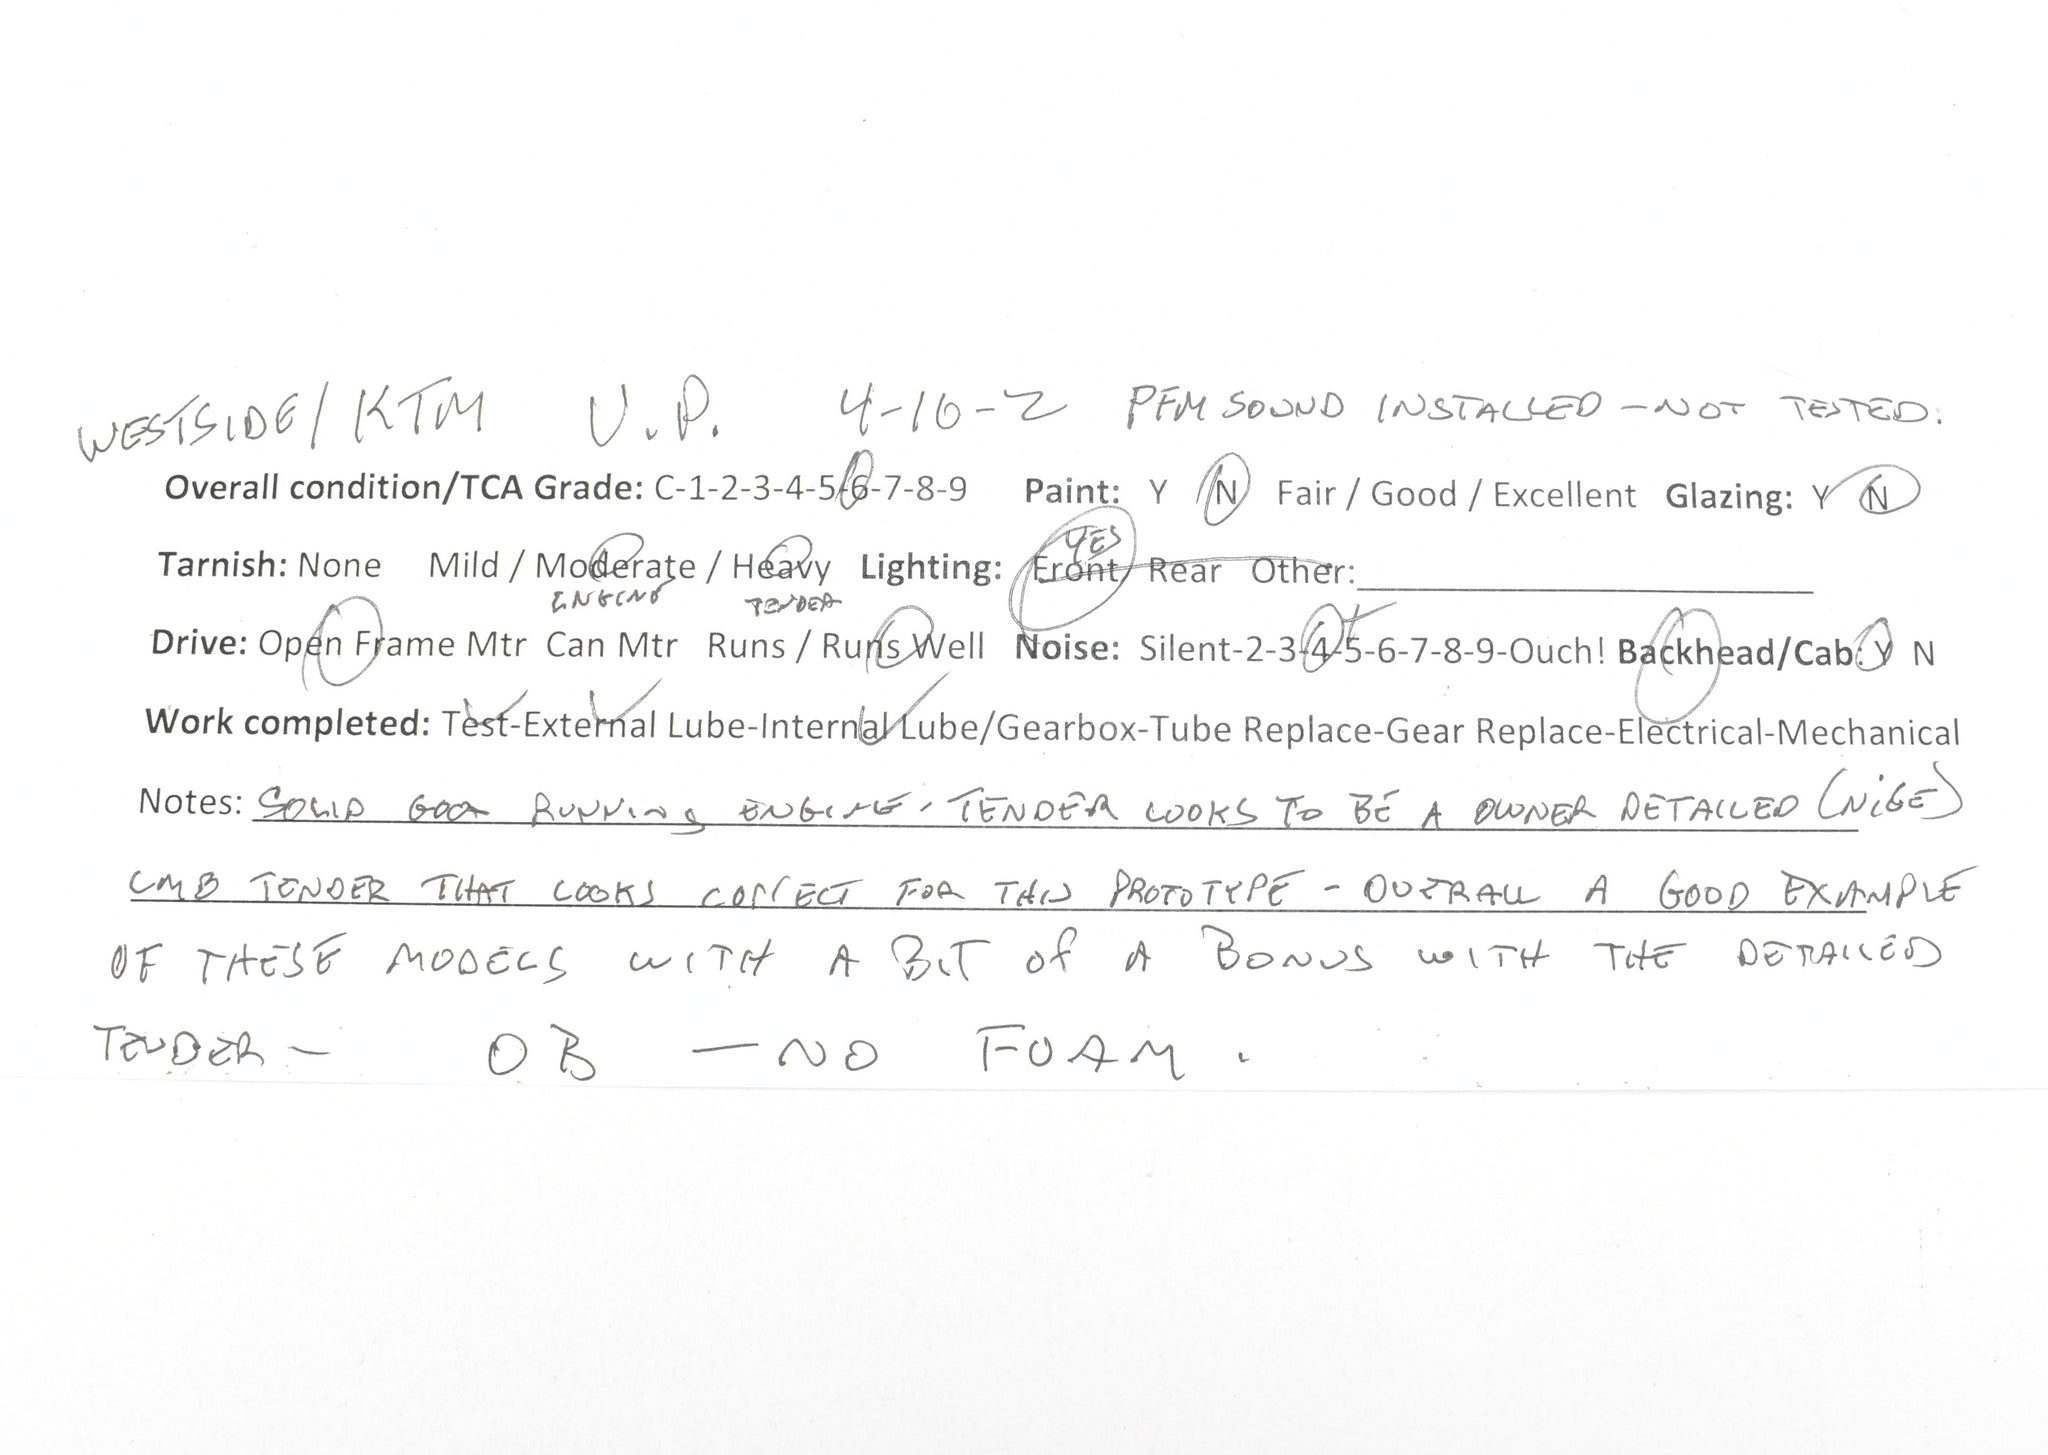 WESTSIDE/KTM U.P. 4-10-2 PFM SOUND INSTALLED - NOT TESTED.
Overall condition/TCA Grade: C-1-2-3-4-5-6-7-8-9 Paint: Y N Fair / Good / Excellent Glazing: Y N
YES
Tarnish: None Mild / Moderate / Heavy Lighting: Front/ Rear Other:
ENGINE TENDER
Drive: Open Frame Mtr Can Mtr Runs / Runs Well Noise: Silent-2-3-4-5-6-7-8-9-Ouch! Backhead/Cab: Y N
Work completed: Test-External Lube-Internal Lube/Gearbox-Tube Replace-Gear Replace-Electrical-Mechanical
Notes: SOLID GOOD RUNNING ENGINE. TENDER LOOKS TO BE A OWNER DETAILED (NICE)
LMB TENDER THAT LOOKS CORRECT FOR THIS PROTOTYPE - OVERALL A GOOD EXAMPLE
OF THESE MODELS WITH A BIT Of A BONUS WITH THE DETAILED
TENDER - OB - NO FOAM.